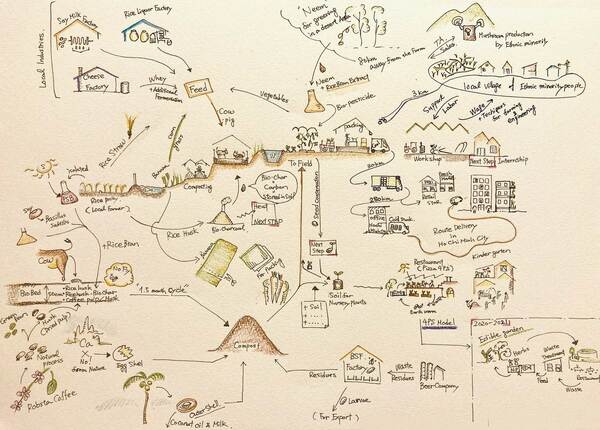 Local Industries
Soy Milk Factory
Rice Liquor Factory
Cheese
Factory
Whey
+Additional
Fermentation
Feed
Cow
pig
Vegetables
Neem
for greening
in a desert Area
Away From the Farm
Neem
+ Rice Bran Extract
Bio pesticide
Mushroom production
by Ethnic minority
Sales
local village of Ethnic minority people
3 km
Support
Labor
Wage
for farming
engineering
Rice Straw
Banana
Corn
grass
isolated
Rice paddy
(Local Farmer)
Bacillus
Subtilis
Composting
Bio-char
Carbon
Stored in Soil
Heat
Next STEP
Bio-charcoal
Rice Husk
+Rice Bran
Packing
To Field
Seed Conservation
Next
Step
Workshop
Next Step
Internship
Office
Retail
Stor
Route Delivery
in Ho Chi Minh City
Cow
No Fly
Bio Bed
Rice husk &
Coffee pulp/Husk
1.5 month cycle
For Packing
Soil for
Nursery Plants
+ Soil
Restaurant
(Pizza 4P'S)
Earth worm
Kinder garten
Green Bean
Husk
Natural
process
Robsta Coffee
Ca
No!
from Nature
Egg Shell
Compost
Outer Shell
Coconut oil & Milk
Residues
BSF
Factory
Larvae
(For Export)
Waste
Residues
Beer Company
4PS Model
2020-2021
Edible Garden
Herbs
Waste
Treatment
Feed
Waste
Restaurant